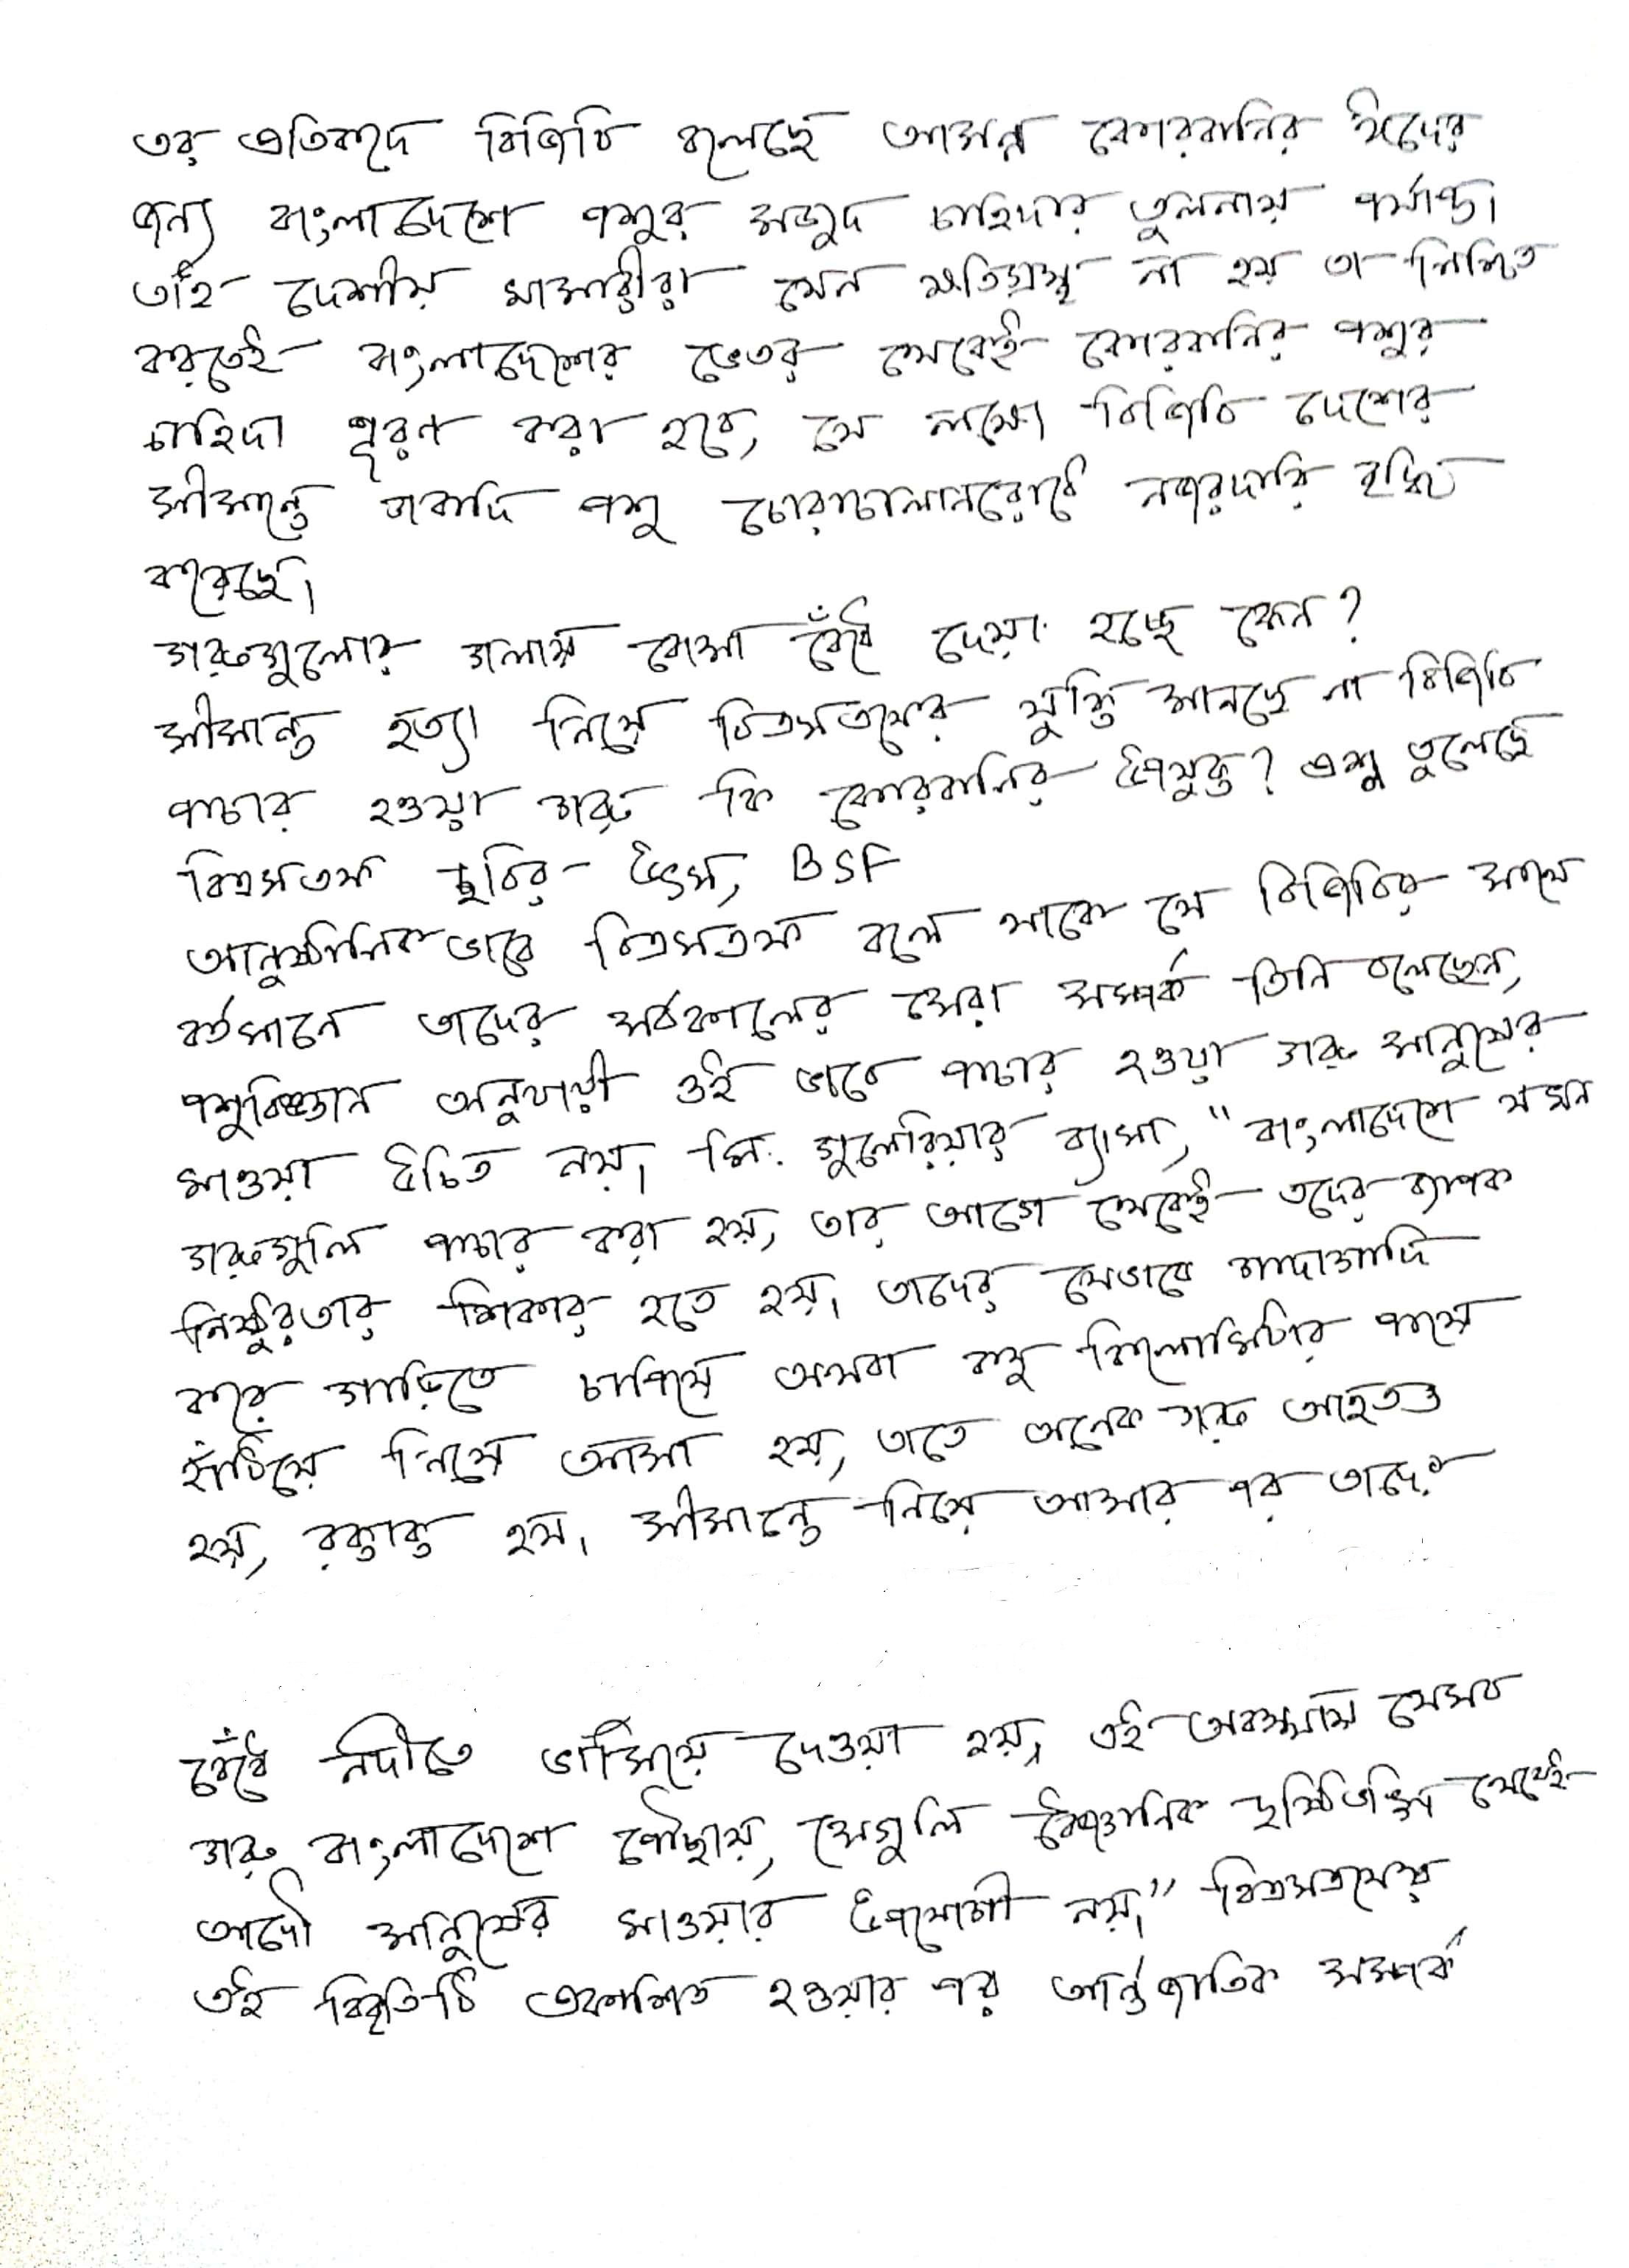 এর প্রতিবাদে বিজিবি বলেছে আসন্ন কোরবানির ঈদের
জন্য বাংলাদেশে পশুর মজুদ চাহিদার তুলনায় পর্যাপ্ত।
তাই দেশীয় খামারীরা যেন ক্ষতিগ্রস্থ না হয় তা নিশ্চিত
করতেই বাংলাদেশের ভেতর থেকেই কোরবানির পশুর
চাহিদা পূরণ করা হবে, সে লক্ষ্যে বিজিবি দেশের
সীমান্তে গবাদি পশু চোরাচালানরোধে নজরদারি বৃদ্ধি
করেছে।
গরুগুলোর গলায় বোমা বেঁধে দেয়া হচ্ছে কেন?
সীমান্ত হত্যা নিয়ে বিএসএফের যুক্তি মানছে না বিজিবি
পাচার হওয়া গরু কি কোরবানির উপযুক্ত? প্রশ্ন তুলেছে
বিএসএফ ছবির উৎস, BSF
আনুষ্ঠানিকভাবে বিএসএফ বলে থাকে যে বিজিবির সাথে
বর্তমানে তাদের সর্বকালের সেরা সম্পর্ক তিনি বলেছেন,
পশুবিজ্ঞান অনুযায়ী ওই ভাবে পাচার হওয়া গরু মানুষের
খাওয়া উচিত নয়। মি. গুলেরিয়ার ব্যাখা, "বাংলাদেশে যখন
গরুগুলি পাচার করা হয়, তার আগে থেকেই ওদের ব্যাপক
নিষ্ঠুরতার শিকার হতে হয়। তাদের যেভাবে গাদাগাদি
করে গাড়িতে চাপিয়ে অথবা বহু কিলোমিটার পথে
হাঁটিয়ে নিয়ে আসা হয়, তাতে অনেক গরু আহতও
হয়, রক্তাক্ত হয়। সীমান্তে নিয়ে আসার পর তাদের
বেঁধে নদীতে ভাসিয়ে দেওয়া হয়, এই অবস্থায় যেসব
গরু বাংলাদেশে পৌঁছায়, সেগুলি বৈজ্ঞানিক দৃষ্টিভঙ্গি থেকেই
আদৌ মানুষের খাওয়ার উপযোগী নয়।" বিএসএফের
এই বিবৃতিটি প্রকাশিত হওয়ার পর আর্ন্তজাতিক সম্পর্ক